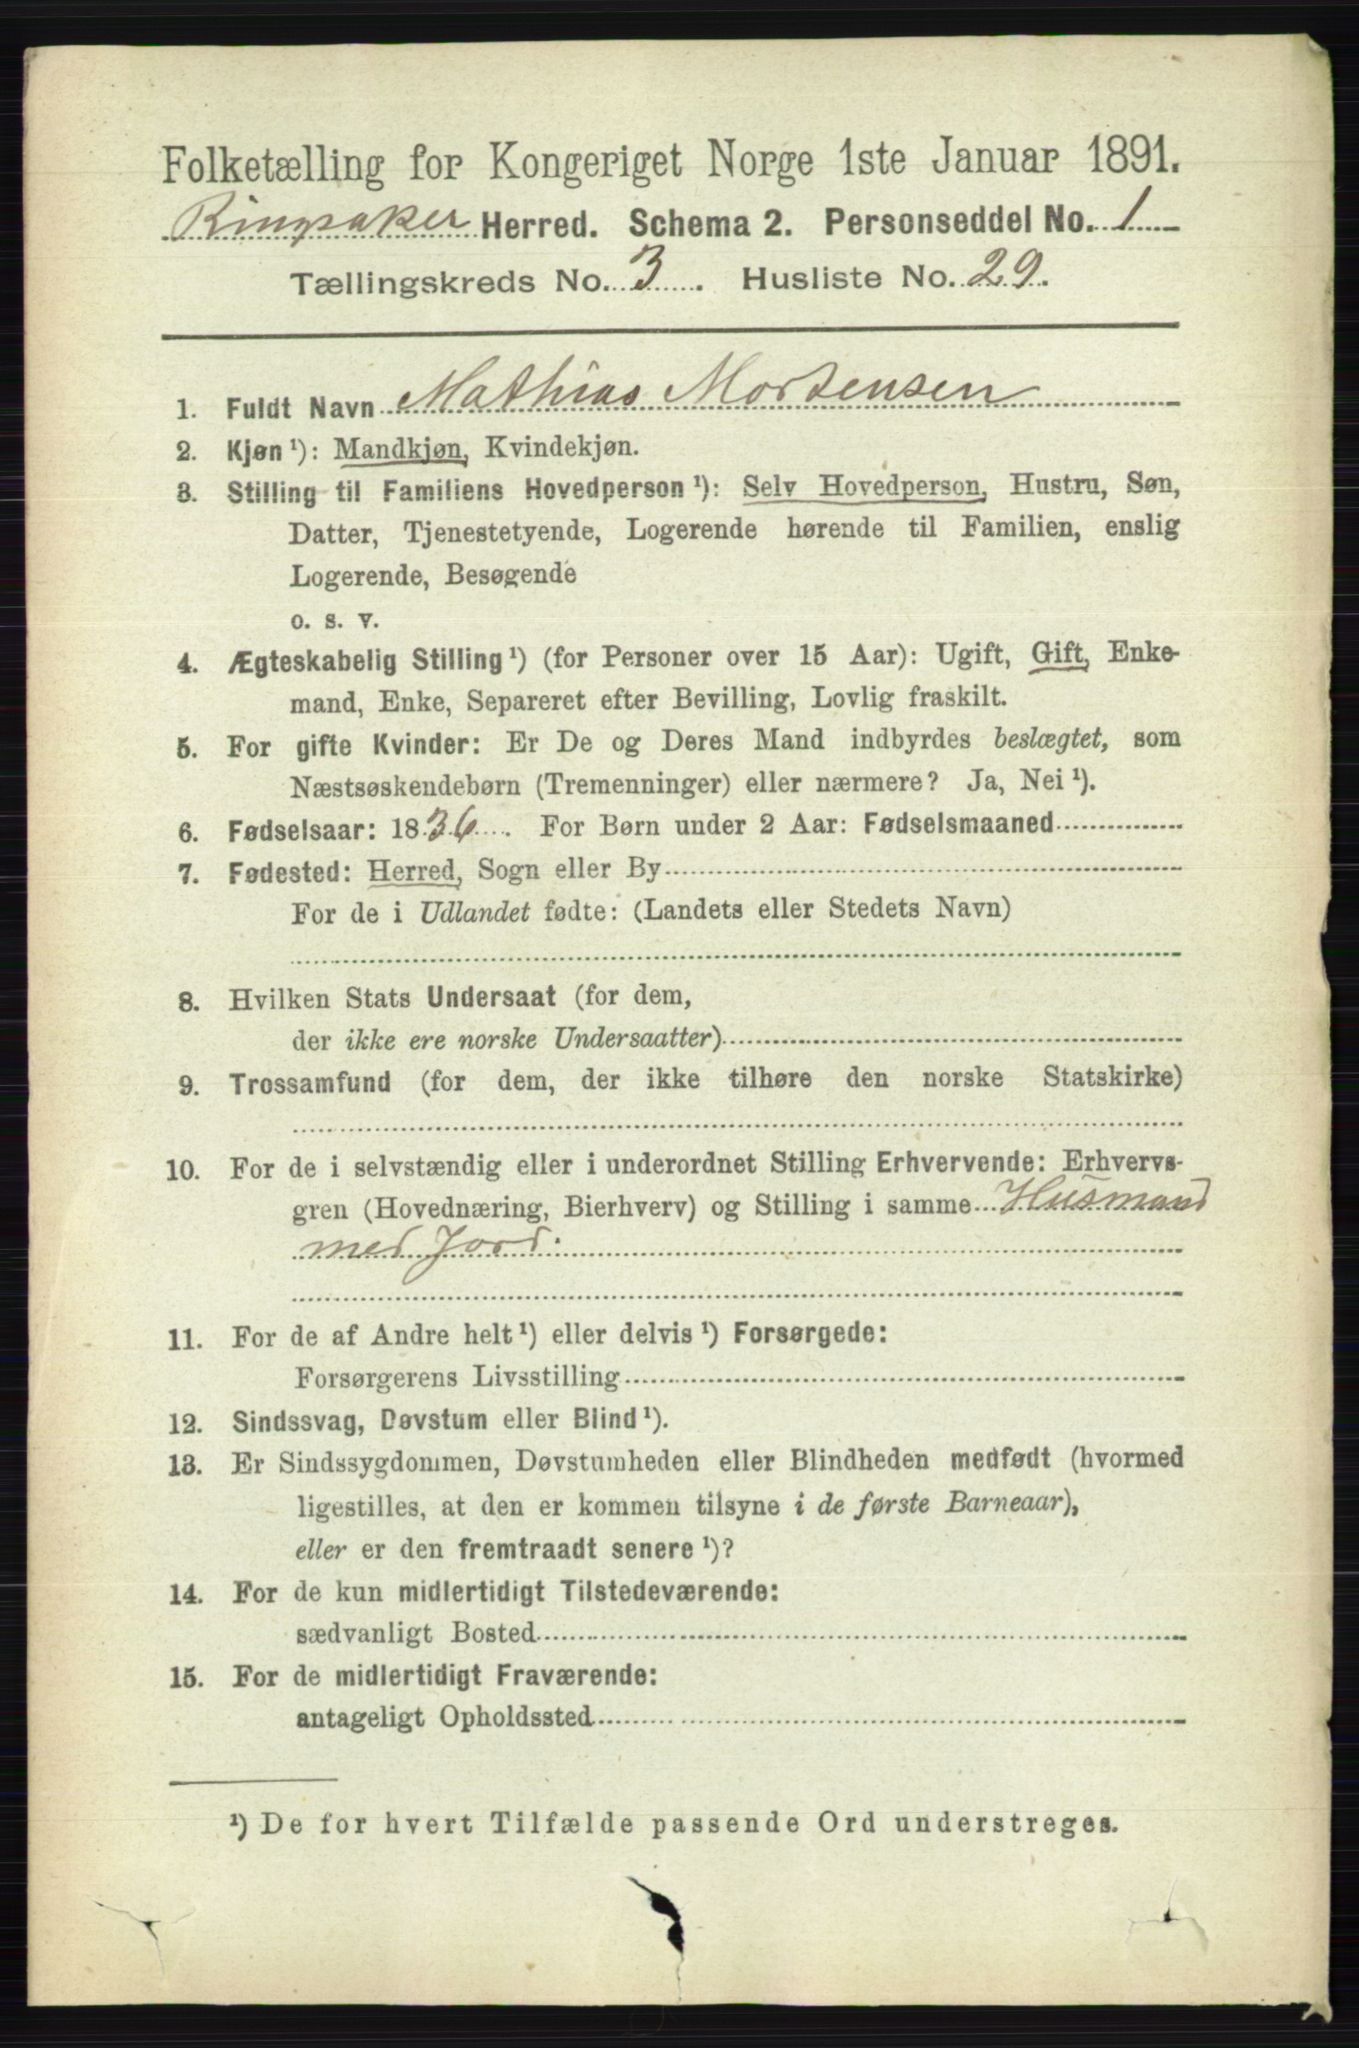 Folketælling for Kongeriget Norge 1ste Januar 1891.
Ringsaker Herred. Schema 2. Personseddel No. 1
Tællingskreds No. 3. Husliste No. 29.
1. Fuldt Navn Mathias Mortensen
2. Kjøn¹): Mandkjøn, Kvindekjøn.
3. Stilling til Familiens Hovedperson¹): Selv Hovedperson, Hustru, Søn,
Datter, Tjenestetyende, Logerende hørende til Familien, enslig
Logerende, Besøgende
o. s. v.
4. Ægteskabelig Stilling¹) (for Personer over 15 Aar): Ugift, Gift, Enke-
mand, Enke, Separeret efter Bevilling, Lovlig fraskilt.
5. For gifte Kvinder: Er De og Deres Mand indbyrdes beslægtet, som
Næstsøskendebørn (Tremenninger) eller nærmere? Ja, Nei¹).
6. Fødselsaar: 1836. For Børn under 2 Aar: Fødselsmaaned
7. Fødested: Herred, Sogn eller By
For de i Udlandet fødte: (Landets eller Stedets Navn)
8. Hvilken Stats Undersaat (for dem,
der ikke ere norske Undersaatter)
9. Trossamfund (for dem, der ikke tilhøre den norske Statskirke)
10. For de i selvstændig eller i underordnet Stilling Erhvervende: Erhvervs-
gren (Hovednæring, Bierhverv) og Stilling i samme Husmand
med Jord.
11. For de af Andre helt¹) eller delvis¹) Forsørgede:
Forsørgerens Livsstilling
12. Sindssvag, Døvstum eller Blind¹).
13. Er Sindssygdommen, Døvstumheden eller Blindheden medfødt (hvormed
ligestilles, at den er kommen tilsyne i de første Barneaar),
eller er den fremtraadt senere¹)?
14. For de kun midlertidigt Tilstedeværende:
sædvanligt Bosted
15. For de midlertidigt Fraværende:
antageligt Opholdssted
¹) De for hvert Tilfælde passende Ord understreges.